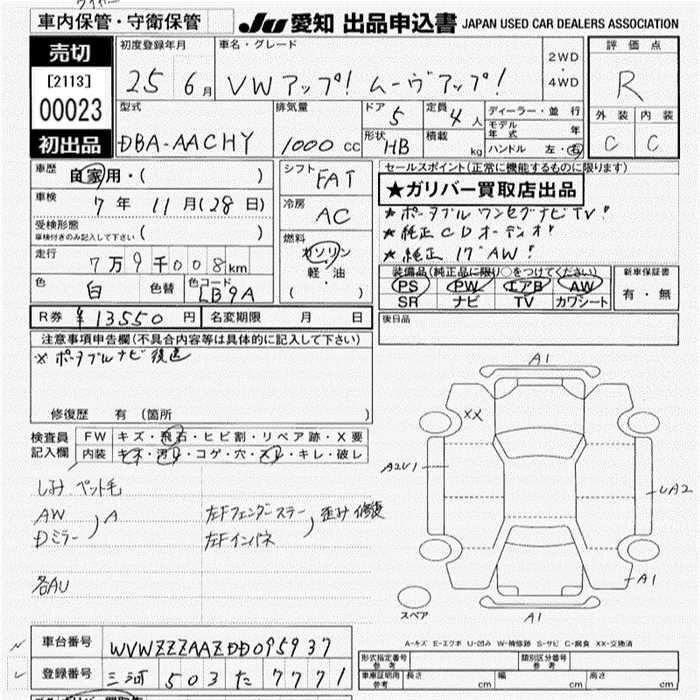 車内保管・守衛保管
JU 愛知 出品申込書 JAPAN USED CAR DEALERS ASSOCIATION
売切
[2113]
00023
初出品
初度登録年月
25 6月
車名・グレード
VWアップ! ムーヴアップ!
2WD
・
4WD
評価点
R
外装 内装
C C
型式
DBA-AACHY
排気量
1000 CC
ドア 5
定員 4人
形状 HB
積載 kg
ディーラー・並行
モデル年式 年
ハンドル 左・右
車歴
自家用・( )
車検
7年 11月(28日)
受検形態
車検付きのみ記入して下さい ( )
走行
7万9千008km
色 白
色替
色コード LB9A
シフト FAT
冷房 AC
燃料
ガソリン
軽・油
( )
セールスポイント(正常に機能するものに限ります)
★ガリバー買取店出品
★ポータブルワンセグナビTV!
★純正CDオーディオ!
★純正17"AW!
装備品(純正品に限り○をつけてください)
PS PW エアB AW
SR ナビ TV カワシート
新車保証書
有・無
R券 ¥13550円
名変期限 月 日
後日品
注意事項申告欄(不具合内容等は具体的に記入して下さい)
※ポータブルナビ後送
修復歴 有 (箇所 )
検査員
記入欄
FW キズ・飛石・ヒビ割・リペア跡・X要
内装 キズ・汚れ・コゲ・穴・スレ・キレ・破レ
しみ ペット毛
AW
Dミラー
A
左Fフェンダーステー
左Fインパネ
歪み 修復
各AU
A1
XX
A2U1
UA2
A1
A1
スペア
A-キズ E-エクボ U-凹み W-補修跡 S-サビ C-腐食 XX-交換済
車台番号 WVWZZZAAZDD095937
登録番号 三河 503 た 7771
形式指定番号
参考
類別区分番号
参考
車庫証明用
参考
長さ cm
幅 cm
高さ cm